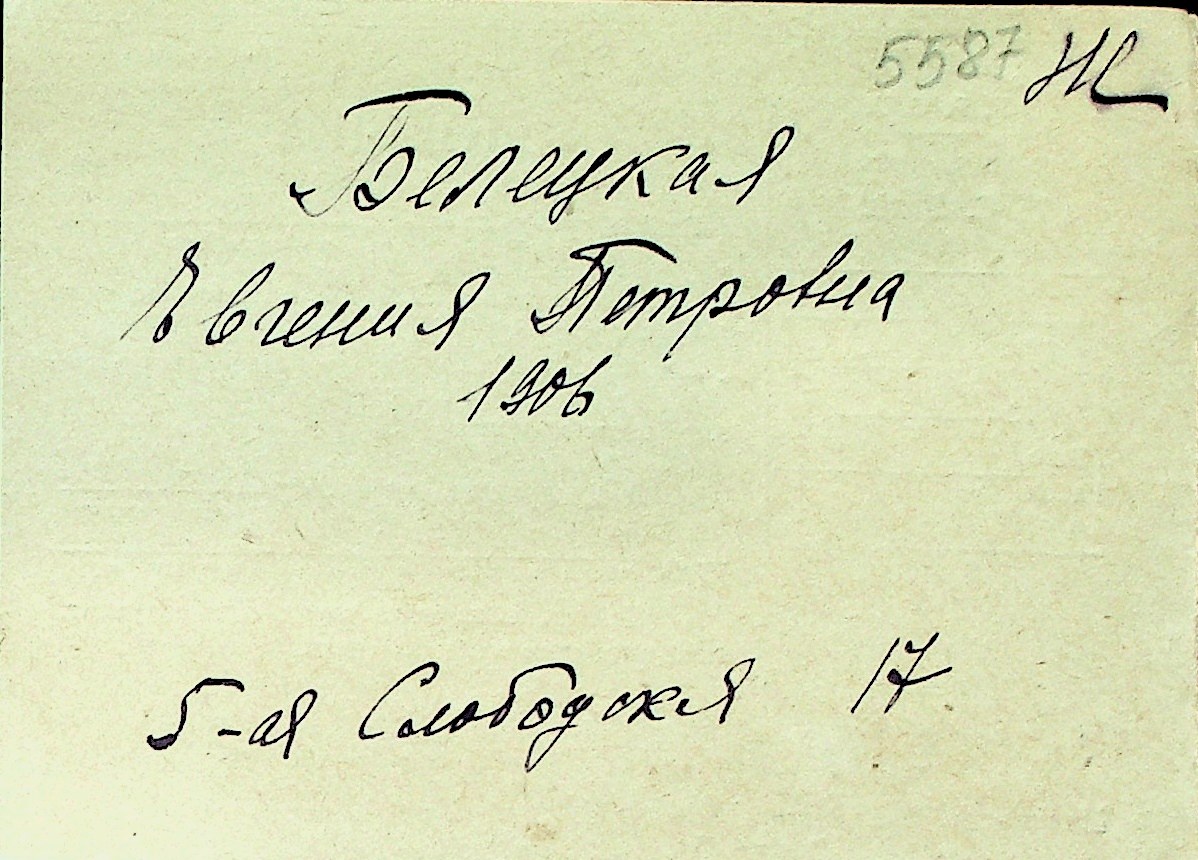 5587 Ж
Белецкая
Евгения Петровна
1906
5-ая Слободская 17